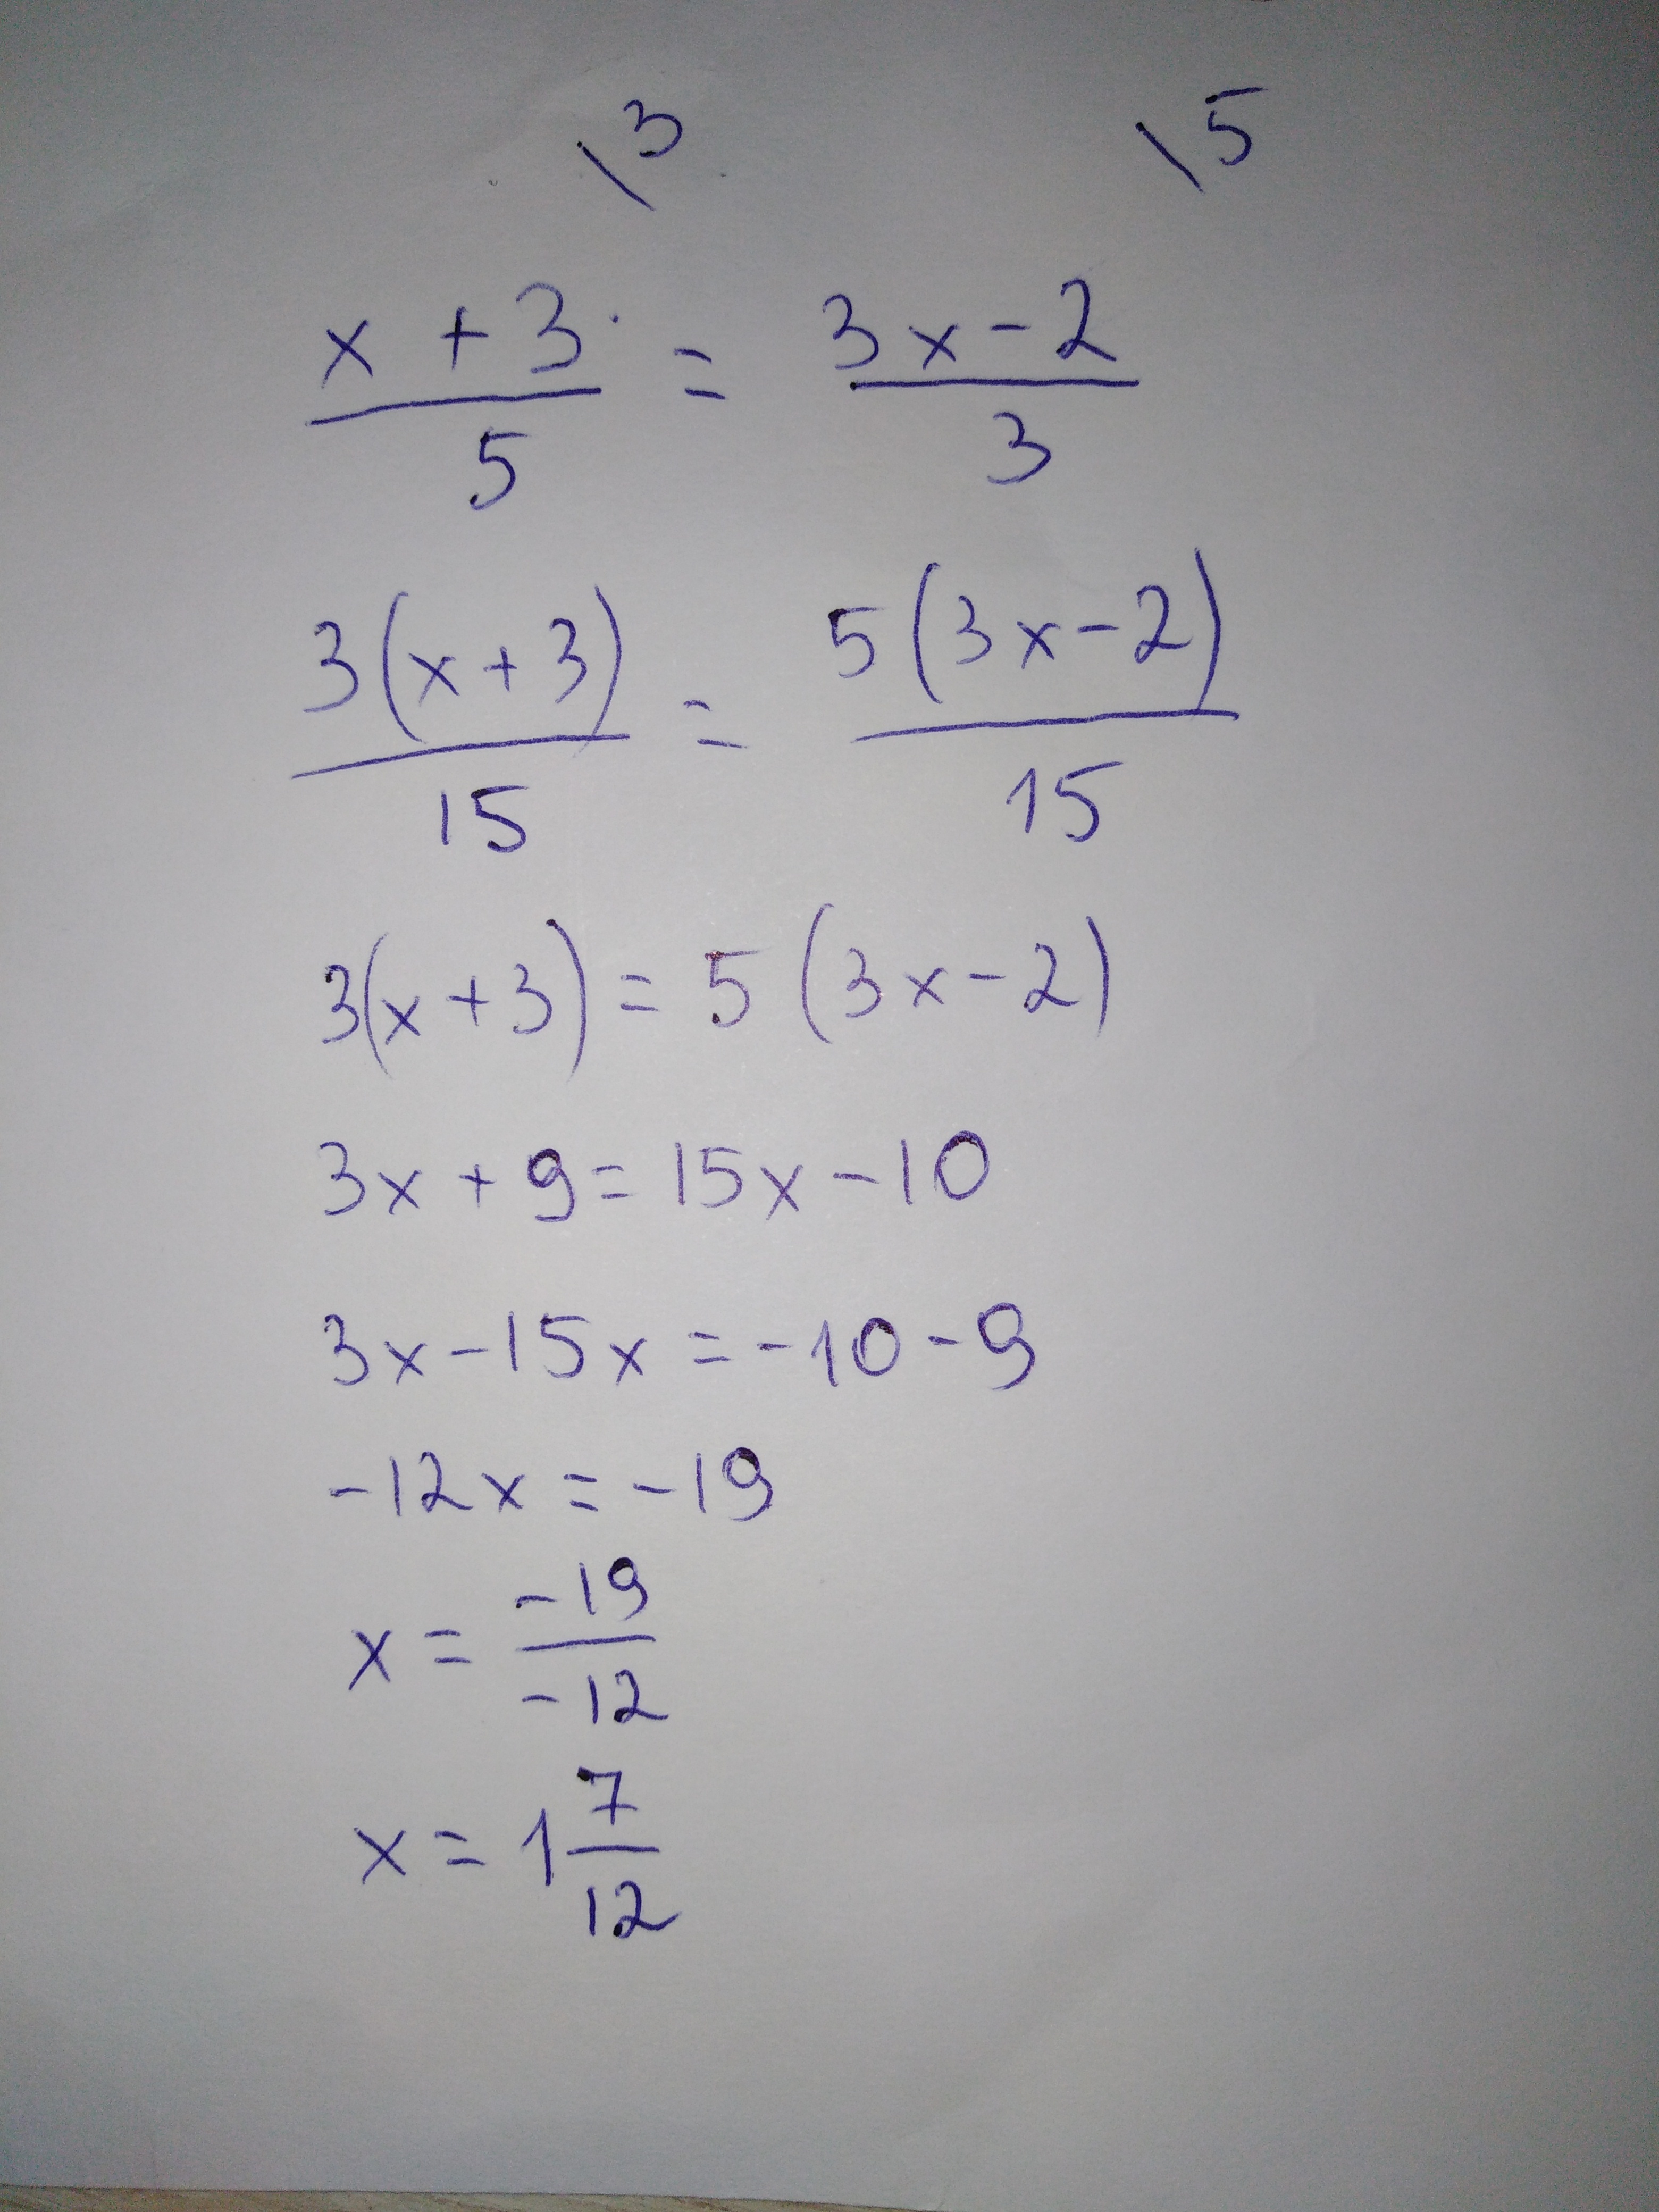 \3 \5
x + 3 / 5 = 3x - 2 / 3
3(x+3) / 15 = 5(3x-2) / 15
3(x+3) = 5(3x-2)
3x + 9 = 15x - 10
3x - 15x = -10 - 9
-12x = -19
x = -19 / -12
x = 1 7/12